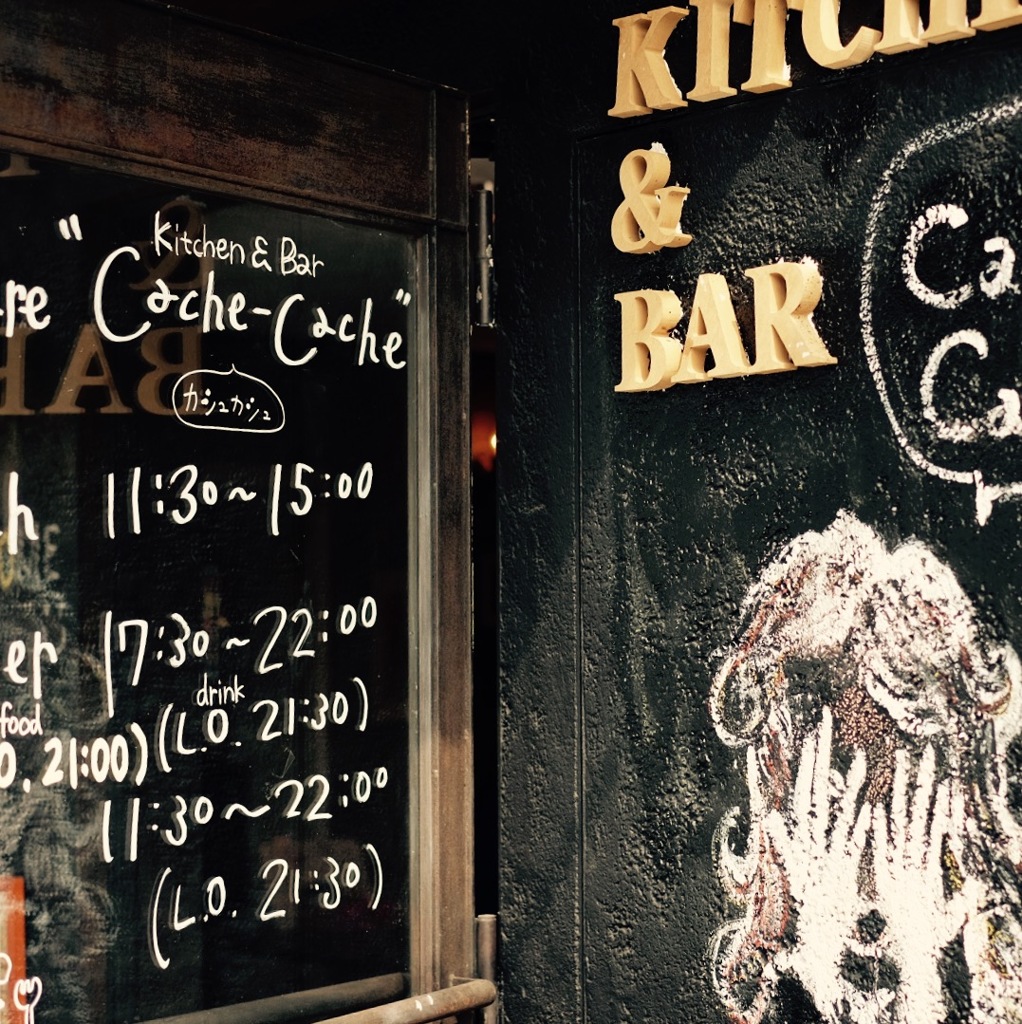 Kitchen & Bar
"Cache-Cache"
カシュカシュ
11:30~15:00
17:30~22:00
food drink
21:00) (L.O. 21:30)
11:30~22:00
(L.O. 21:30)
&
BAR